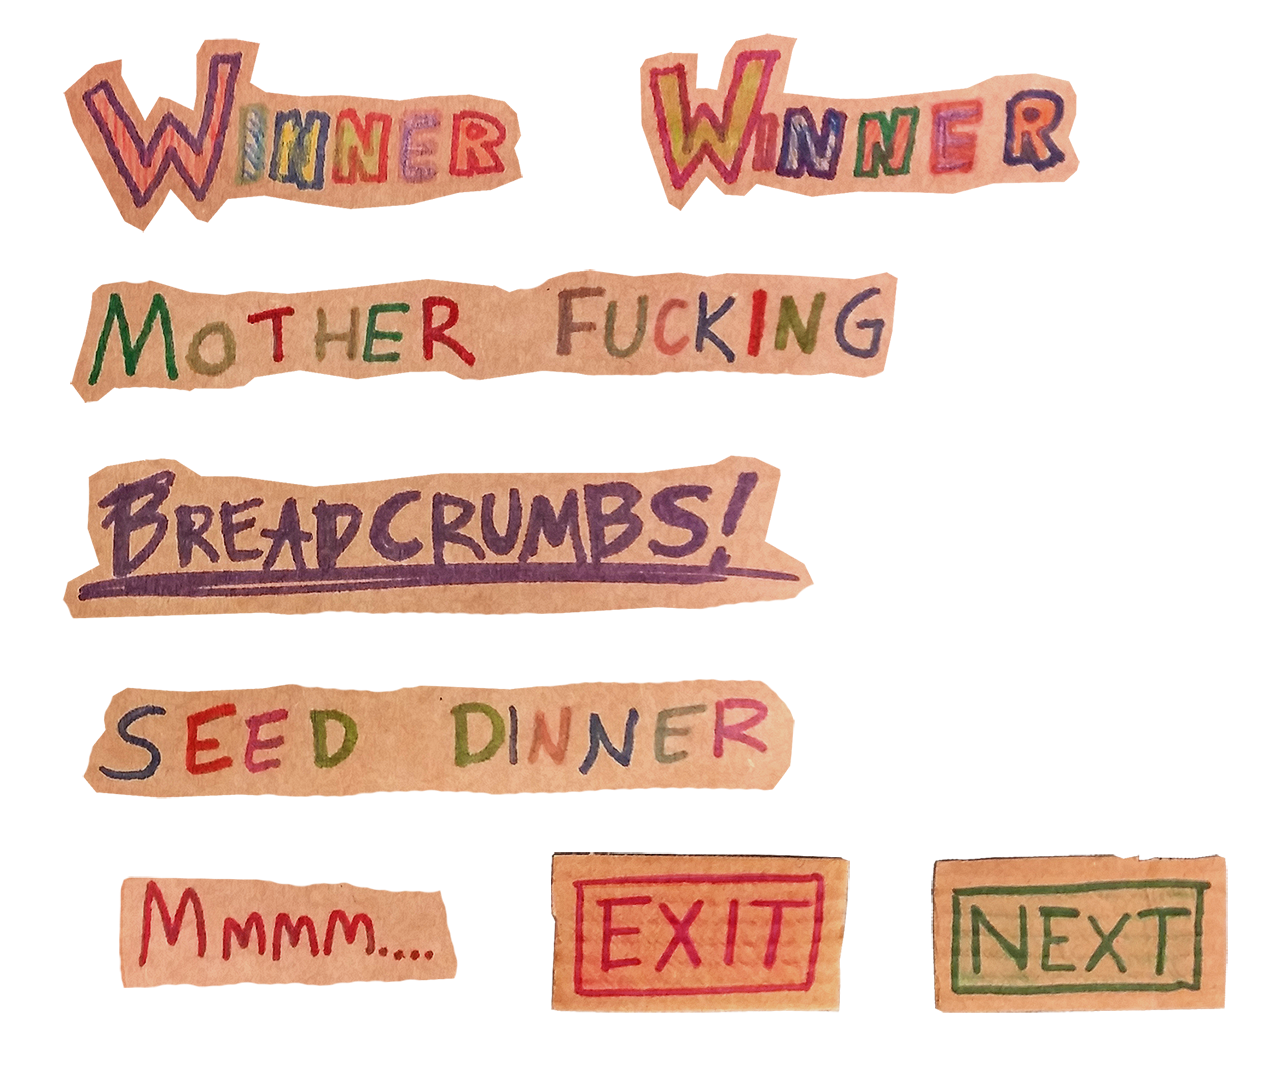 WINNER WINNER
MOTHER FUCKING
BREADCRUMBS!
SEED DINNER
Mmmm.... EXIT NEXT